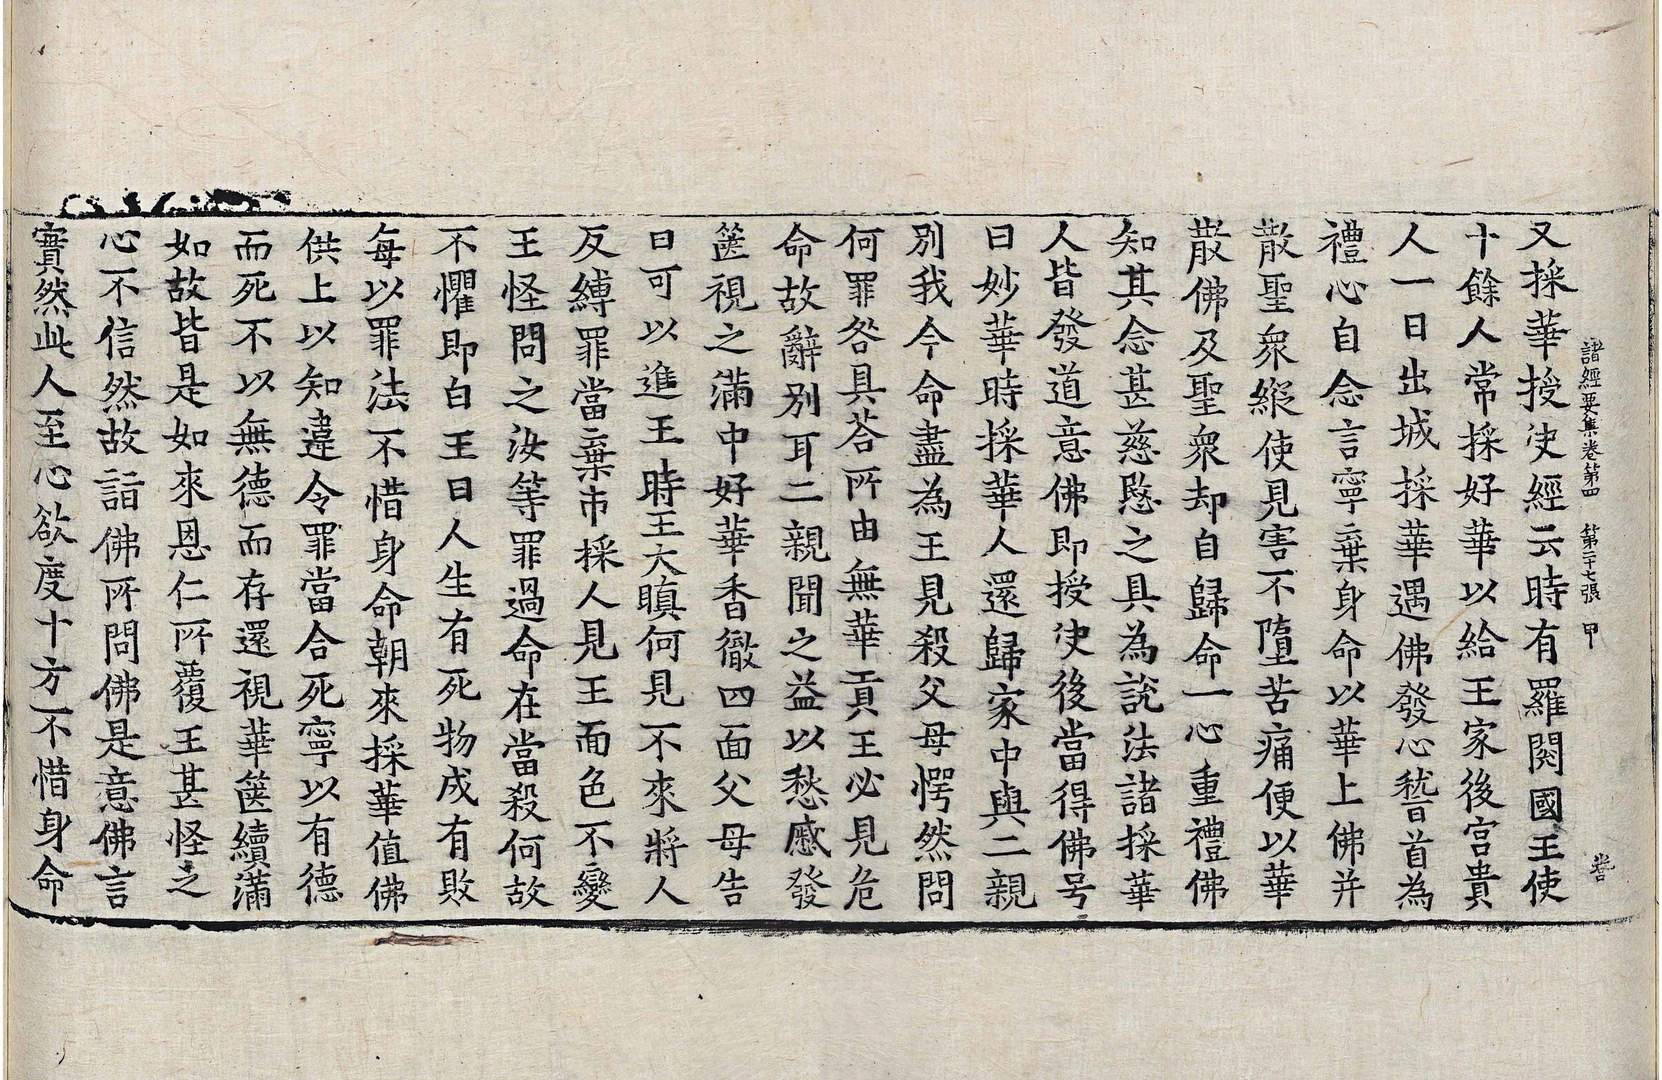 諸經要集卷第四 第二十七張 甲
又採華授决經云時有羅閱國王使
十餘人常採好華以給王家後宮貴
人一日出城採華遇佛發心𥡴首為
禮心自念言寧棄身命以華上佛并
散聖衆縱使見害不墮苦痛便以華
散佛及聖衆却自歸命一心重禮佛
知其念甚慈愍之具為說法諸採華
人皆發道意佛即授决後當得佛号
曰妙華時採華人還歸家中與二親
別我今命盡為王見殺父母愕然問
何罪咎具荅所由無華貢王必見危
命故辭別耳二親聞之益以愁慼發
篋視之滿中好華香徹四面父母告
曰可以進王時王大瞋何見不來將人
反縛罪當棄市採人見王面色不變
王怪問之汝等罪過命在當殺何故
不懼即白王曰人生有死物成有敗
每以罪法不惜身命朝來採華值佛
供上以知違令罪當合死寧以有德
而死不以無德而存還視華篋續滿
如故皆是如來恩仁所覆王甚怪之
心不信然故詣佛所問佛是意佛言
實然此人至心欲度十方不惜身命